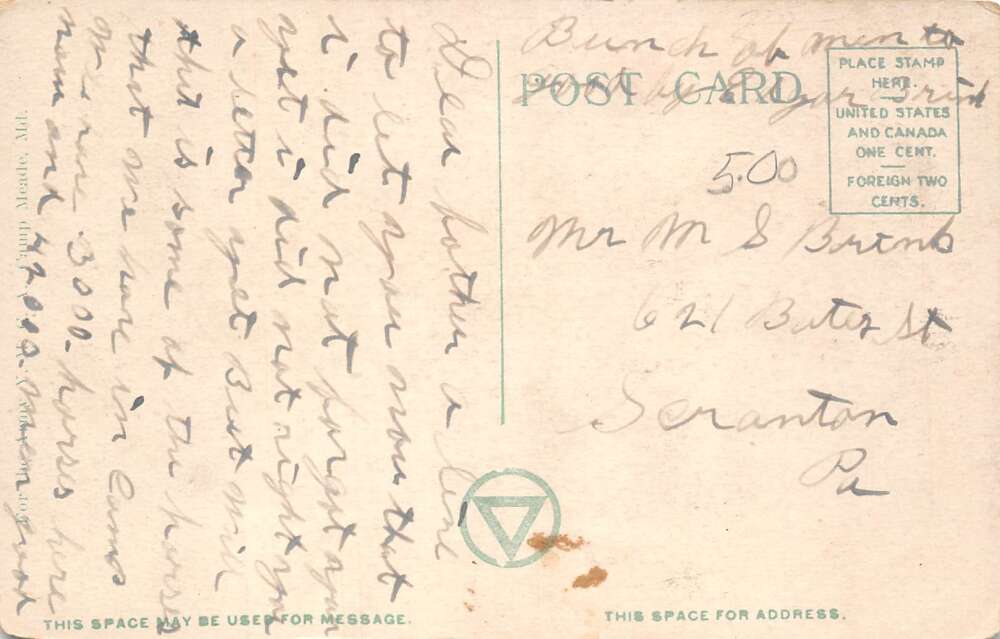 Bunch of men to
by Edgar Brink
POST CARD
PLACE STAMP
HERE.
UNITED STATES
AND CANADA
ONE CENT.
FOREIGN TWO
CENTS.
5.00
Mr M S Brink
621 Butez St
Scranton
Pa
Dear fother a line
to let you now that
i did not forget you
yet i did not right you
a letter yet But will
this is some of the horses
that we have in Camp
we have 3000 horses here
now and 42000 men good
Camp Meade, Md.
THIS SPACE MAY BE USED FOR MESSAGE.
THIS SPACE FOR ADDRESS.